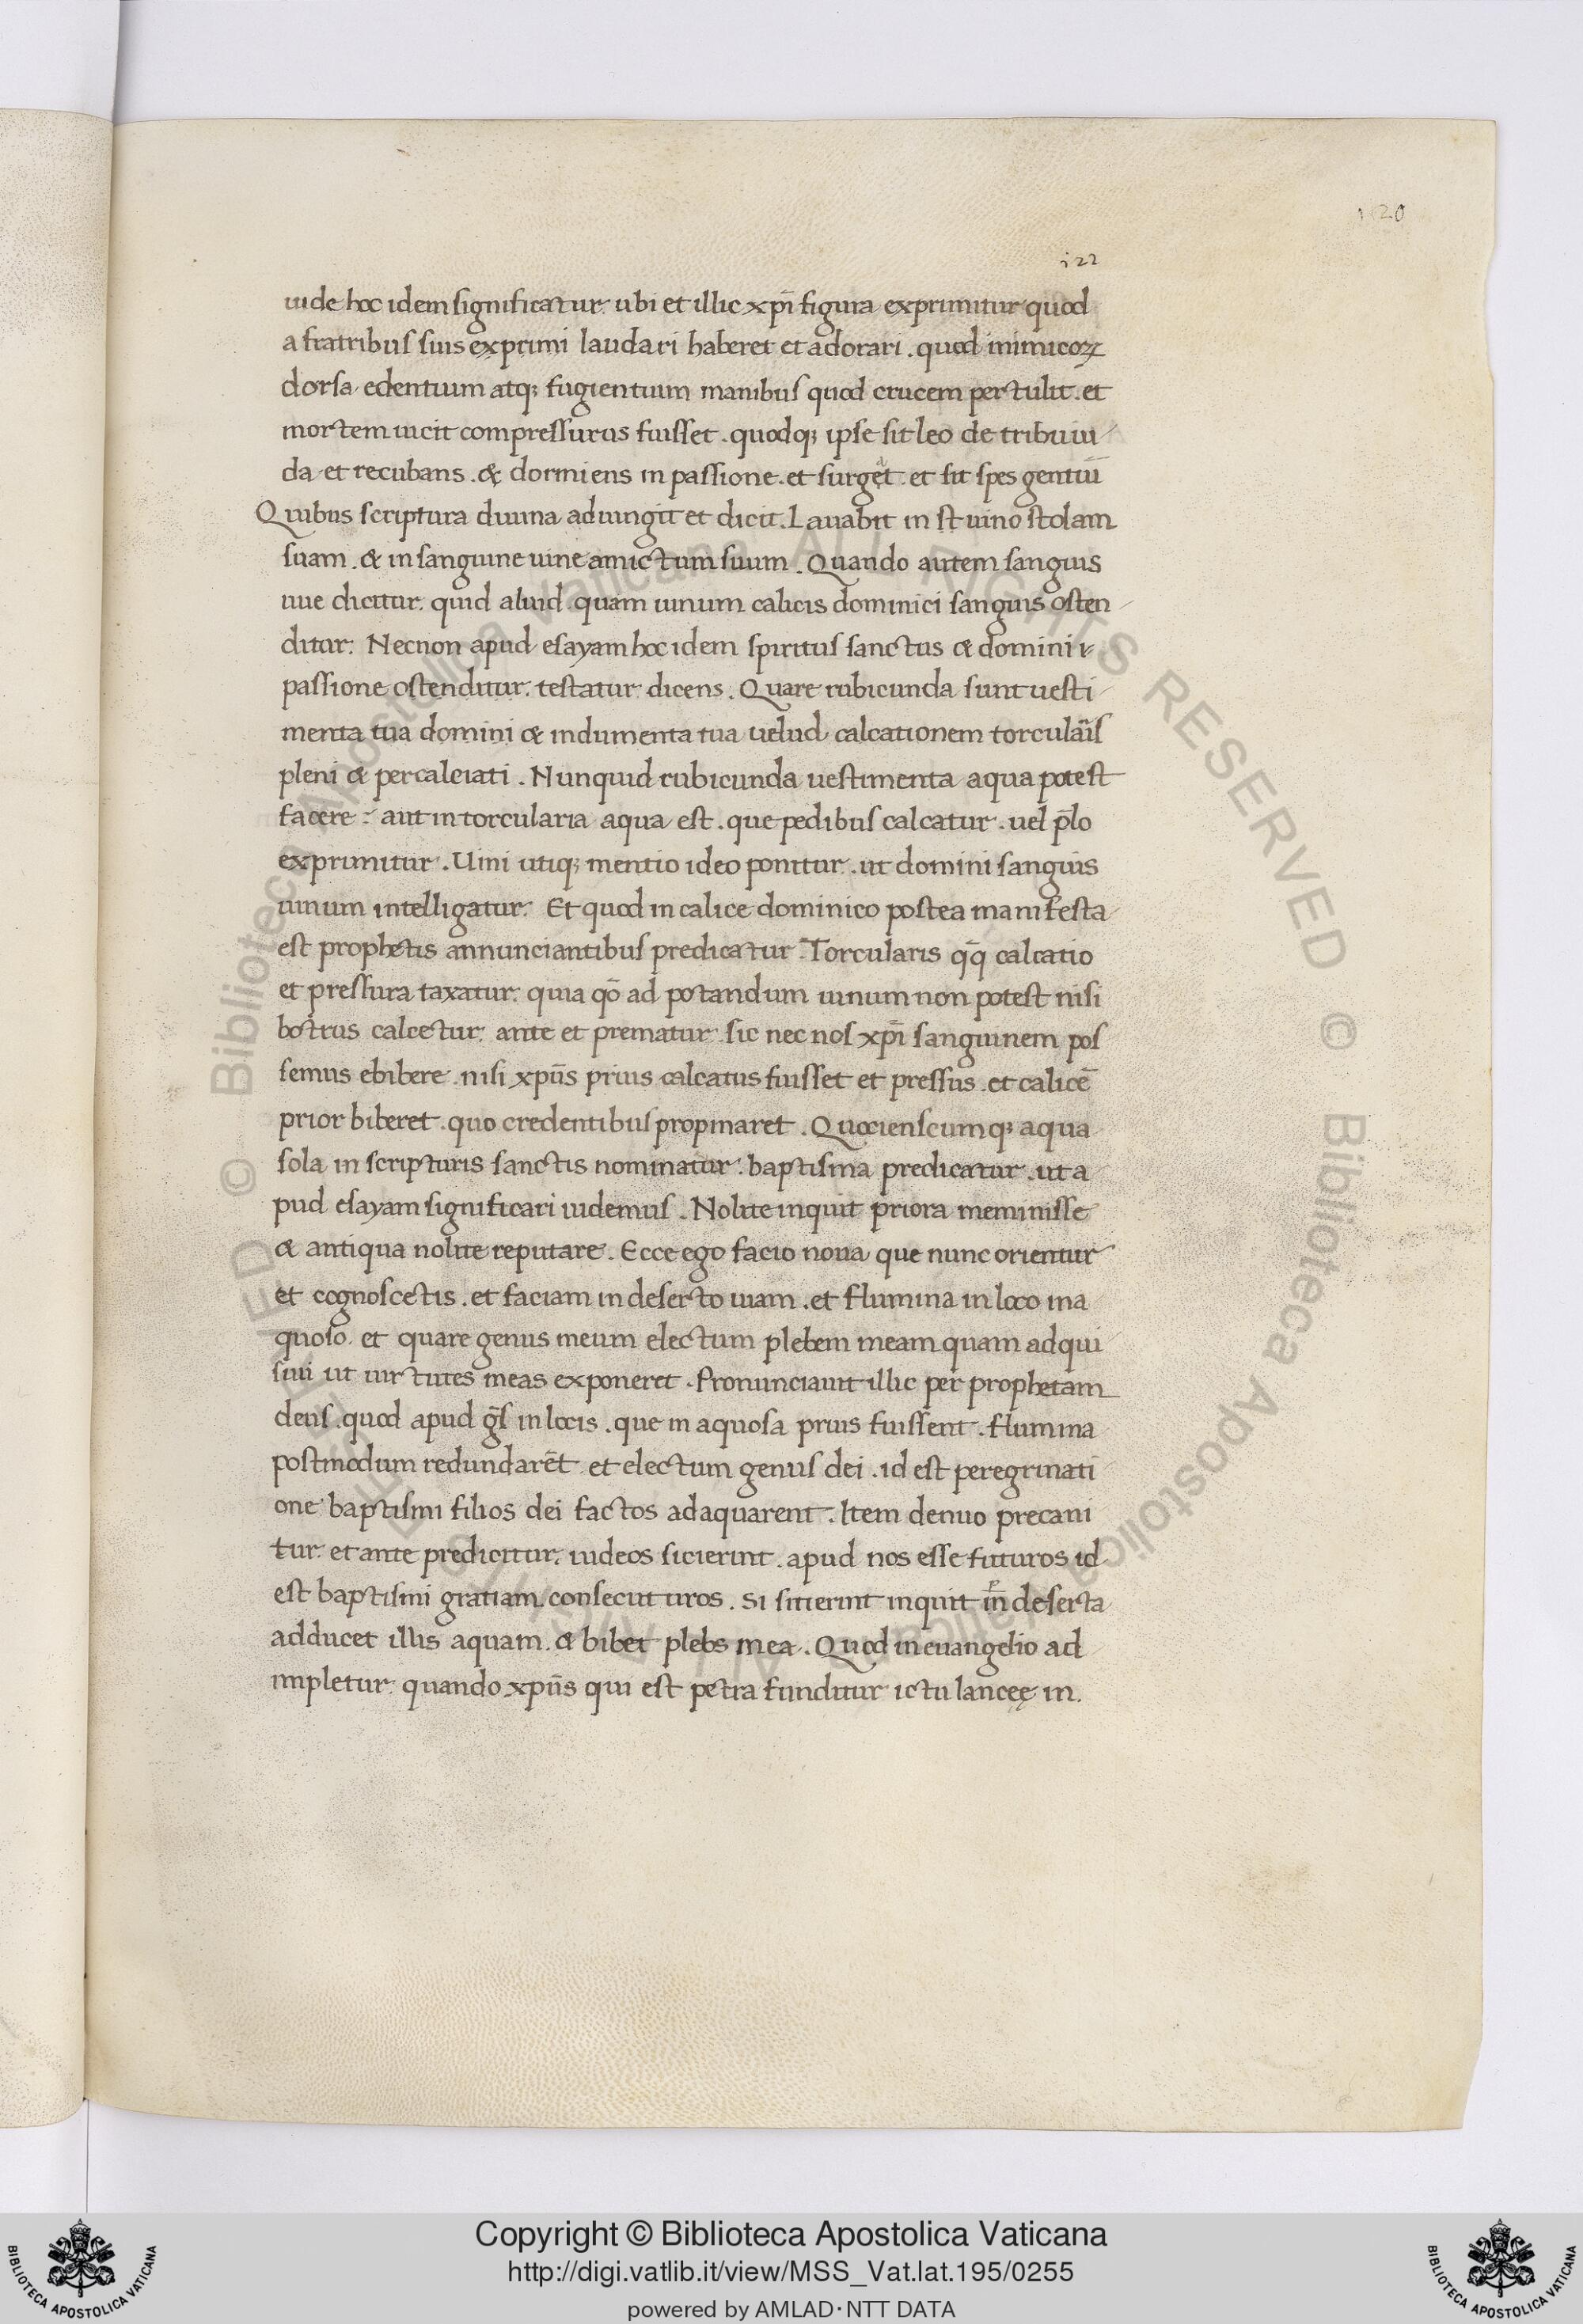 120
122
iude hoc idem significatur. ubi et illic xp̄i figura exprimitur quod
a fratribus suis exprimi laudari haberet et adorari . quod inimicoꝝ
dorsa edentium atq; fugientium manibus quod crucem pertulit . et
mortem uicit compressurus fuisset . quodq; ipse sit leo de tribu iu
da et recubans . & dormiens in passione . et surget . et sit spes gentiū
Quibus scriptura diuina adiungit et dicit . Lauabit in st uino stolam
suam . & in sanguine uine amictum suum . Quando autem sanguis
uue dicitur. quid aliud quam uinum calicis dominici sanguis osten
ditur. Necnon apud esayam hoc idem spiritus sanctus & domini
passione ostenditur. testatur dicens . Quare rubicunda sunt uesti
menta tua domini & indumenta tua uelud calcationem torcularis
pleni & percalciati . Nunquid rubicunda uestimenta aqua potest
facere : aut in torcularia aqua est . que pedibus calcatur . uel p̄lo
exprimitur . Uini utiq; mentio ideo ponitur . ut domini sanguis
uinum intelligatur. Et quod in calice dominico postea manifesta
est prophetis annunciantibus predicatur . Torcularis qq̄ calcatio
et pressura taxatur. quia qō ad potandum uinum non potest nisi
botrus calcetur. ante et prematur sic nec nos xp̄i sanguinem pos
semus ebibere . nisi xpūs prius calcatus fuisset et pressus . et calicē
prior biberet . quo credentibus propinaret . Quocienscumq; aqua
sola in scripturis sanctis nominatur . baptisma predicatur . ut a
pud esayam significari uidemus . Nolite inquit priora meminisse
& antiqua nolite reputare . Ecce ego facio noua que nunc orientur
et cognoscetis . et faciam in deserto uiam . et flumina in loco ina
quoso . et quare genus meum electum plebem meam quam adqui
siui ut uirtutes meas exponeret . Pronunciauit illic per prophetam
deus . quod apud ḡs in locis . que in aquosa prius fuissent . flumina
postmodum redundarēt . et electum genus dei . id est peregrinati
one baptismi filios dei factos adaquarent . Item denuo precani
tur. et ante predicitur. iudeos sicierint . apud nos esse futuros id
est baptismi gratiam consecuturos . Si sitierint inquit deserta
adducet illis aquam . & bibet plebs mea . Quod in euangelio ad
impletur. quando xpūs qui est petra funditur ictu lanceę in .
Copyright © Biblioteca Apostolica Vaticana
http://digi.vatlib.it/view/MSS_Vat.lat.195/0255
powered by AMLAD·NTT DATA
BIBLIOTECA APOSTOLICA VATICANA
BIBLIOTECA APOSTOLICA VATICANA